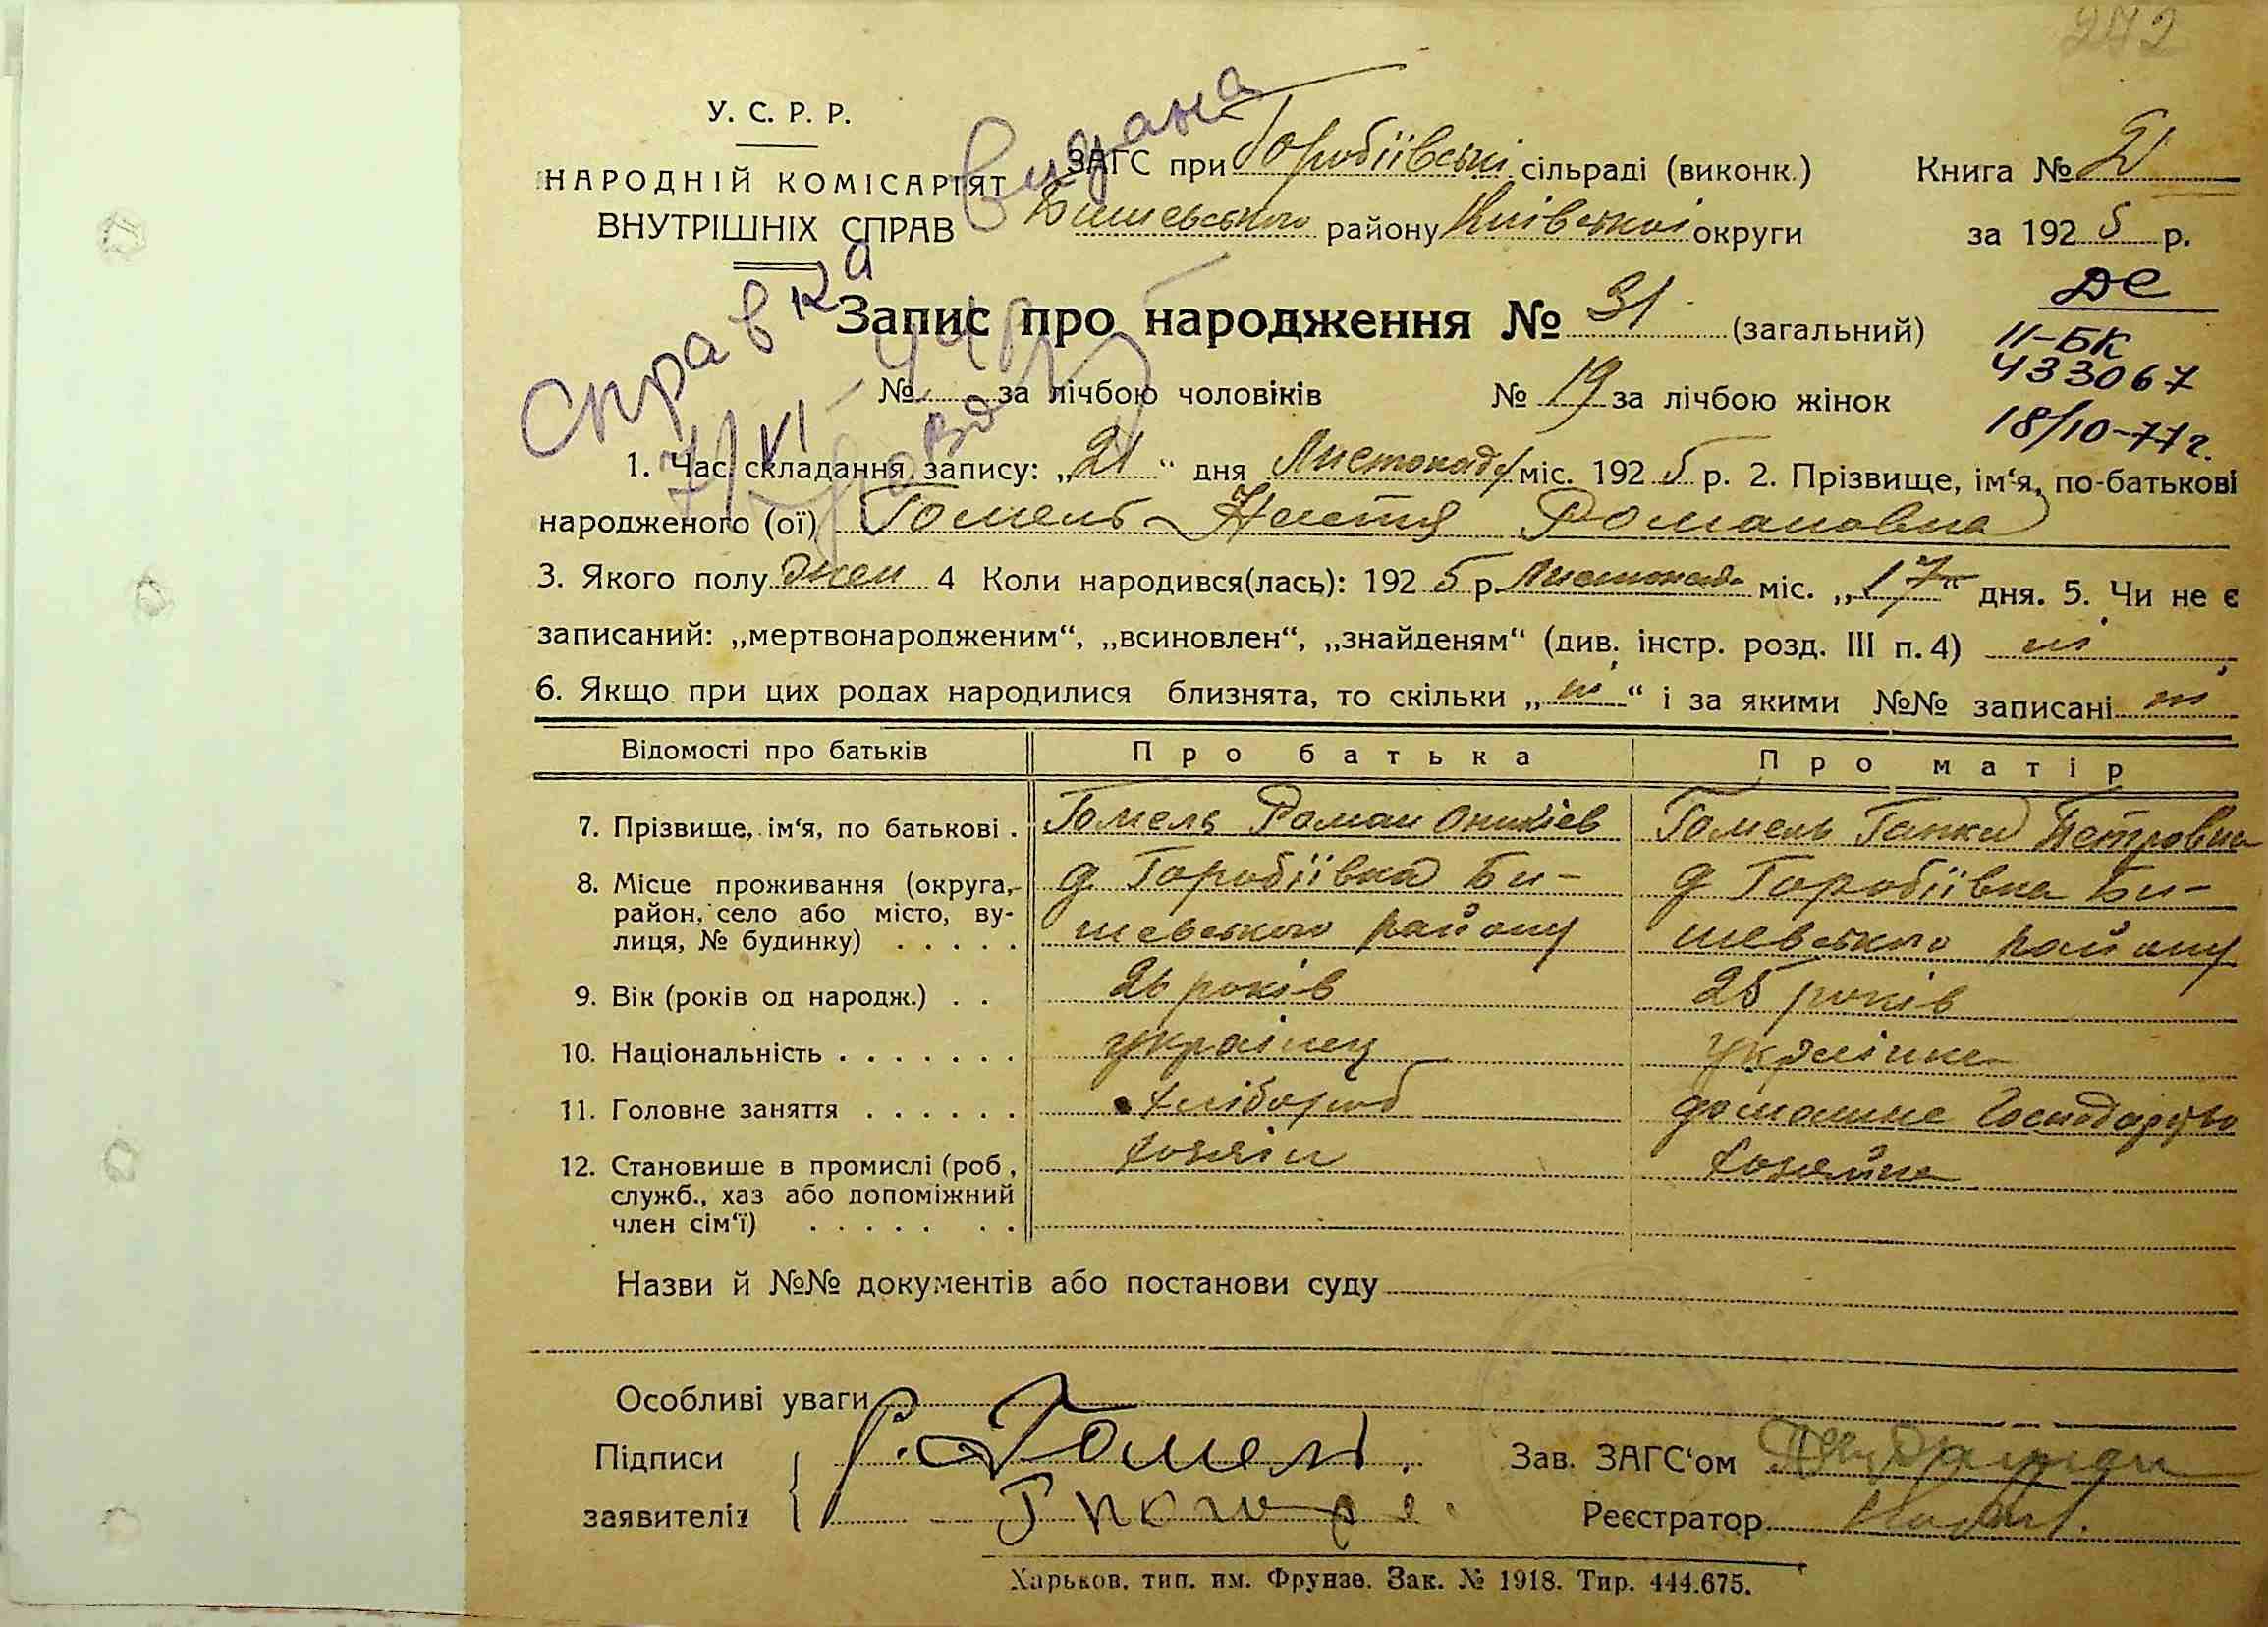 272
У. С. Р. Р.
НАРОДНІЙ КОМІСАРІЯТ
ВНУТРІШНІХ СПРАВ
ЗАГС при Горобіївські сільраді (виконк.)
Бишевського району Київської округи
Книга № 2
за 1925 р.
видана
Справка
7/VI-44р
ДС
II-БК
433067
18/10-77г.
Запис про народження № 31 (загальний)
№ за лічбою чоловіків № 19 за лічбою жінок
1. Час складання запису: „21“ дня Листопада міс. 1925 р. 2. Прізвище, ім‘я, по-батькові
народженого (ої) Гомель Настя Романовна
3. Якого полу жен 4 Коли народився(лась): 1925 р Листопада міс. „17“ дня. 5. Чи не є
записаний: „мертвонародженим“, „всиновлен“, „знайденям“ (див. інстр. розд. III п. 4) ні
6. Якщо при цих родах народилися близнята, то скільки „ні“ і за якими №№ записані ні
Відомості про батьків Про батька Про матір
7. Прізвище, ім‘я, по батькові . Гомель Роман Оникіев Гомель Ганка Петровна
8. Місце проживання (округа, район, село або місто, вулиця, № будинку) . . . . . д Горобіївка Бишевського району д Горобіївка Бишевського району
9. Вік (років од народж.) . . 26 років 25 років
10. Національність . . . . . . . українец українка
11. Головне заняття . . . . . . хлібороб домашне Господарство
12. Становище в промислі (роб, служб., хаз або допоміжний член сім‘ї) . . . . . . . хозяін хозяйка
Назви й №№ документів або постанови суду
Особливі уваги
Підписи
заявителів
Р. Гомель.
Зав. ЗАГС‘ом
Реєстратор
Харьков. тип. им. Фрунзе. Зак. № 1918. Тир. 444.675.